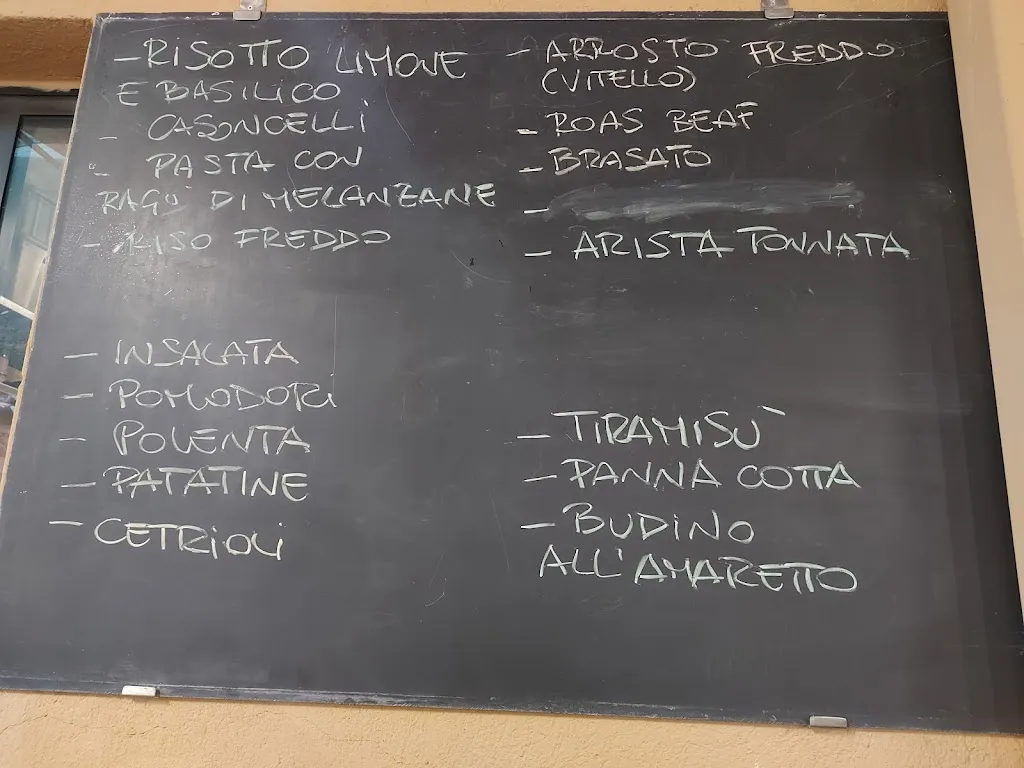 - RISOTTO LIMONE
E BASILICO
- CASONCELLI
- PASTA CON
RAGÙ DI MELANZANE
- RISO FREDDO
- INSALATA
- POMODORI
- POLENTA
- PATATINE
- CETRIOLI
- ARROSTO FREDDO
(VITELLO)
- ROAS BEAF
- BRASATO
-
- ARISTA TONNATA
- TIRAMISÙ
- PANNA COTTA
- BUDINO
ALL'AMARETTO